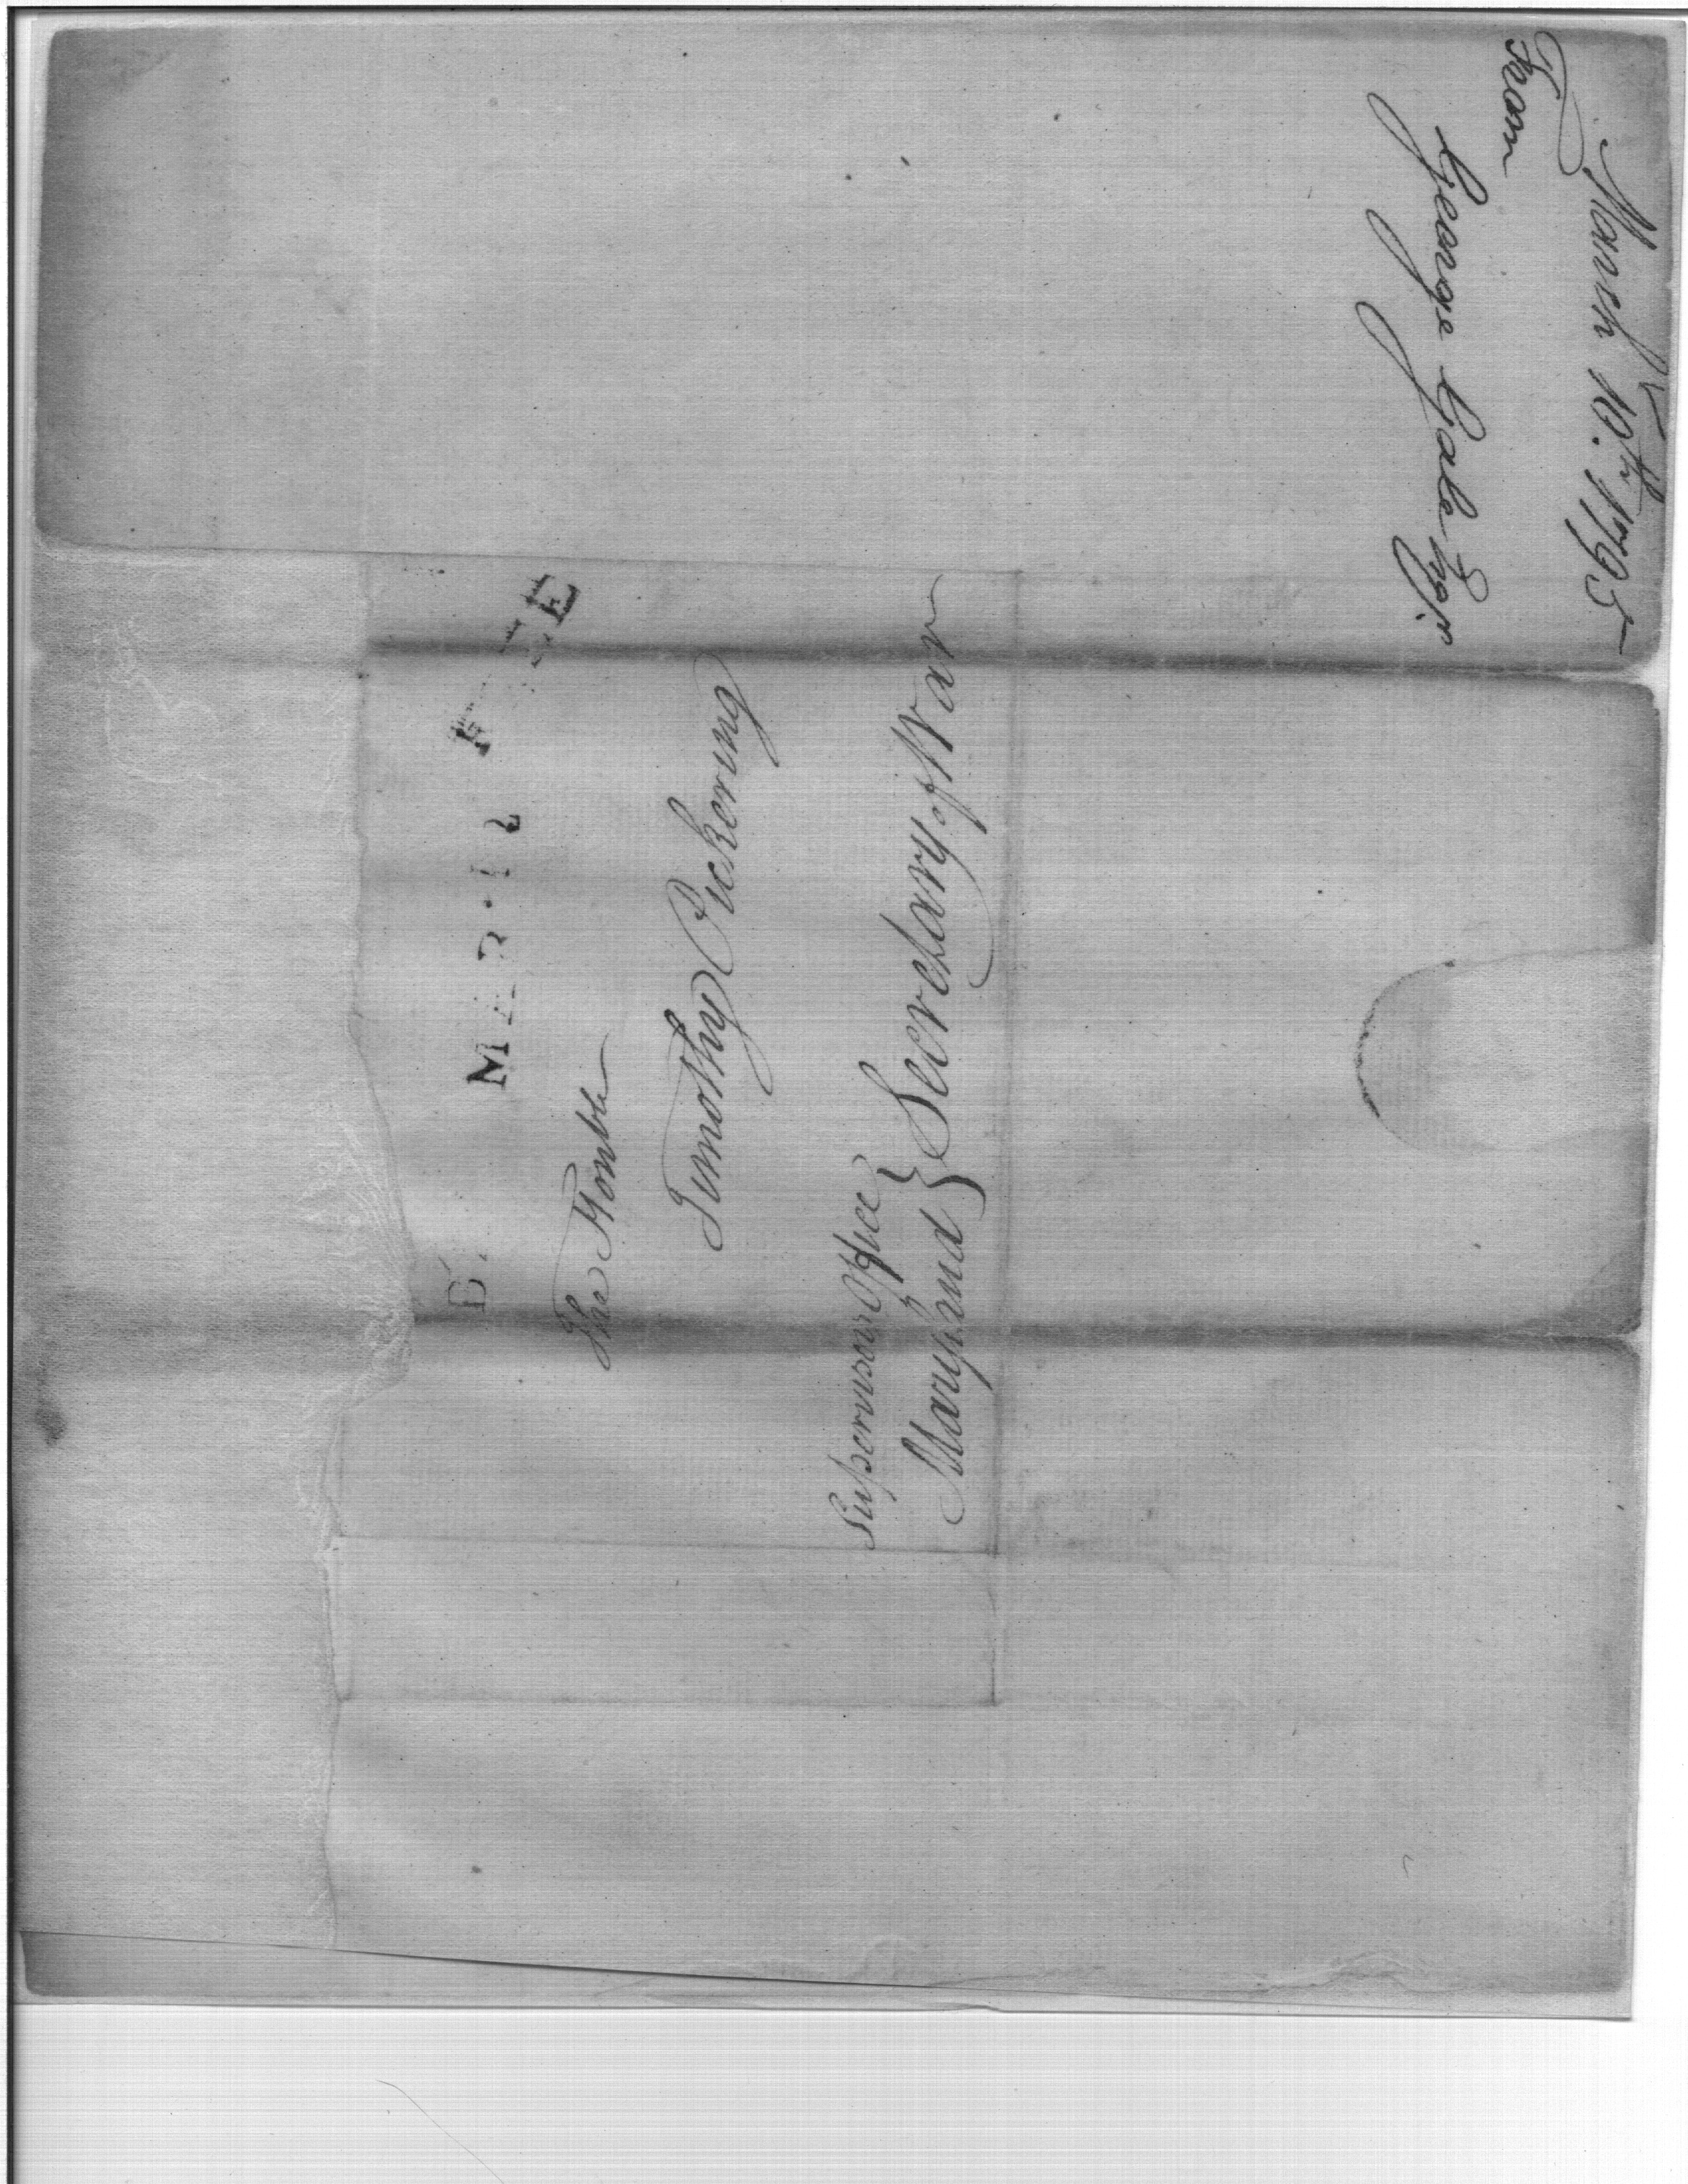 March 10th. 1795
From
George Gale Esqr.
FREE
MAR 12
The Honble
Timothy Pickering
Secretary of War
Supervisors Office
Maryland